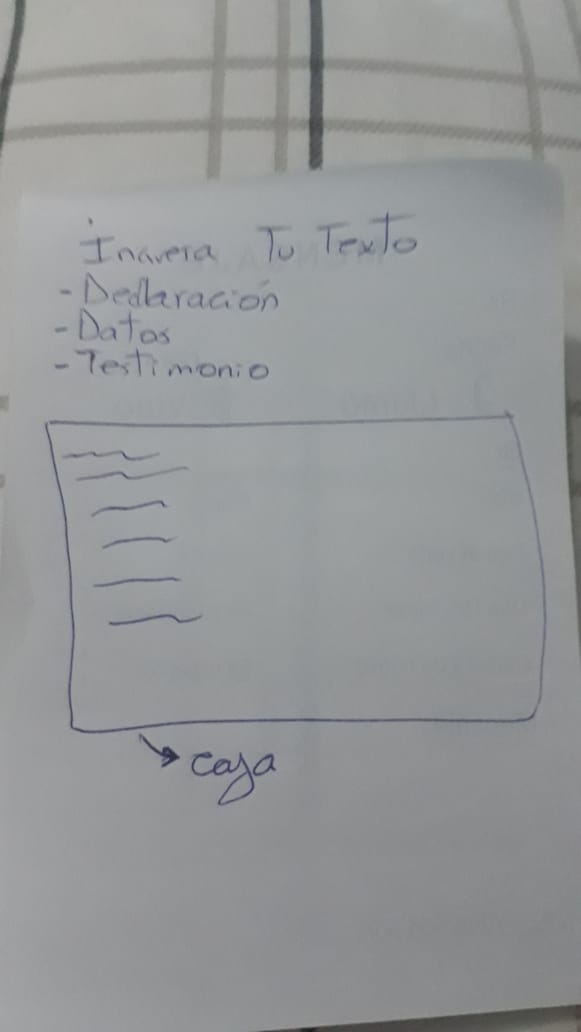 Tu Texto
- Declaración
- Datos
- Testimonio
caja